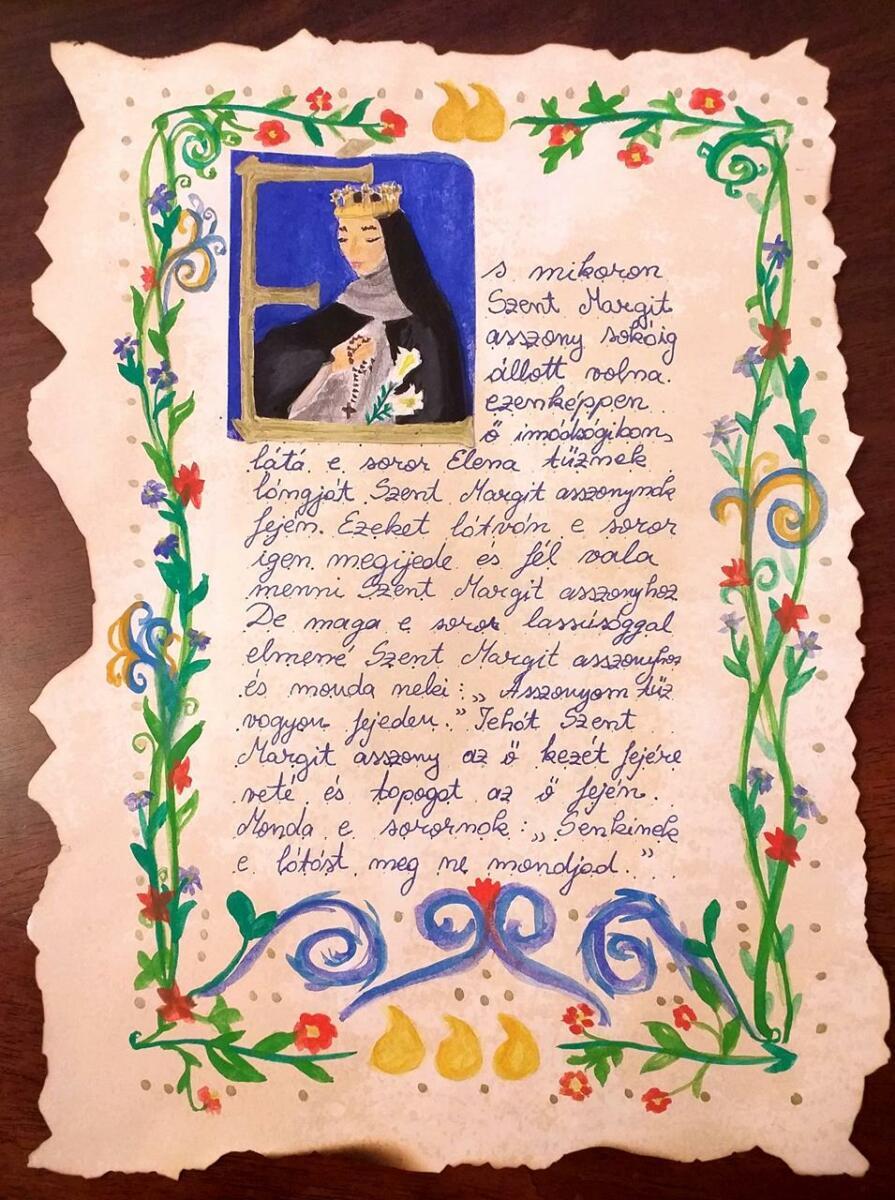 E
s mikoron
Szent Margit
asszony sokáig
állott volna
ezenképpen
ő imádságiban,
látá e soror Elena tűznek
lángját Szent Margit asszonynak
fején. Ezeket látván e soror
igen megijede és fél vala
menni Szent Margit asszonyhoz
De maga e soror lassúsággal
elmené Szent Margit asszonyhoz
és monda neki: „Asszonyom tűz
vagyon fejeden.” Tehát Szent
Margit asszony az ő kezét fejére
veté és topogat az ő fején.
Monda e sorornak: „Senkinek
e látást meg ne mondjad.”